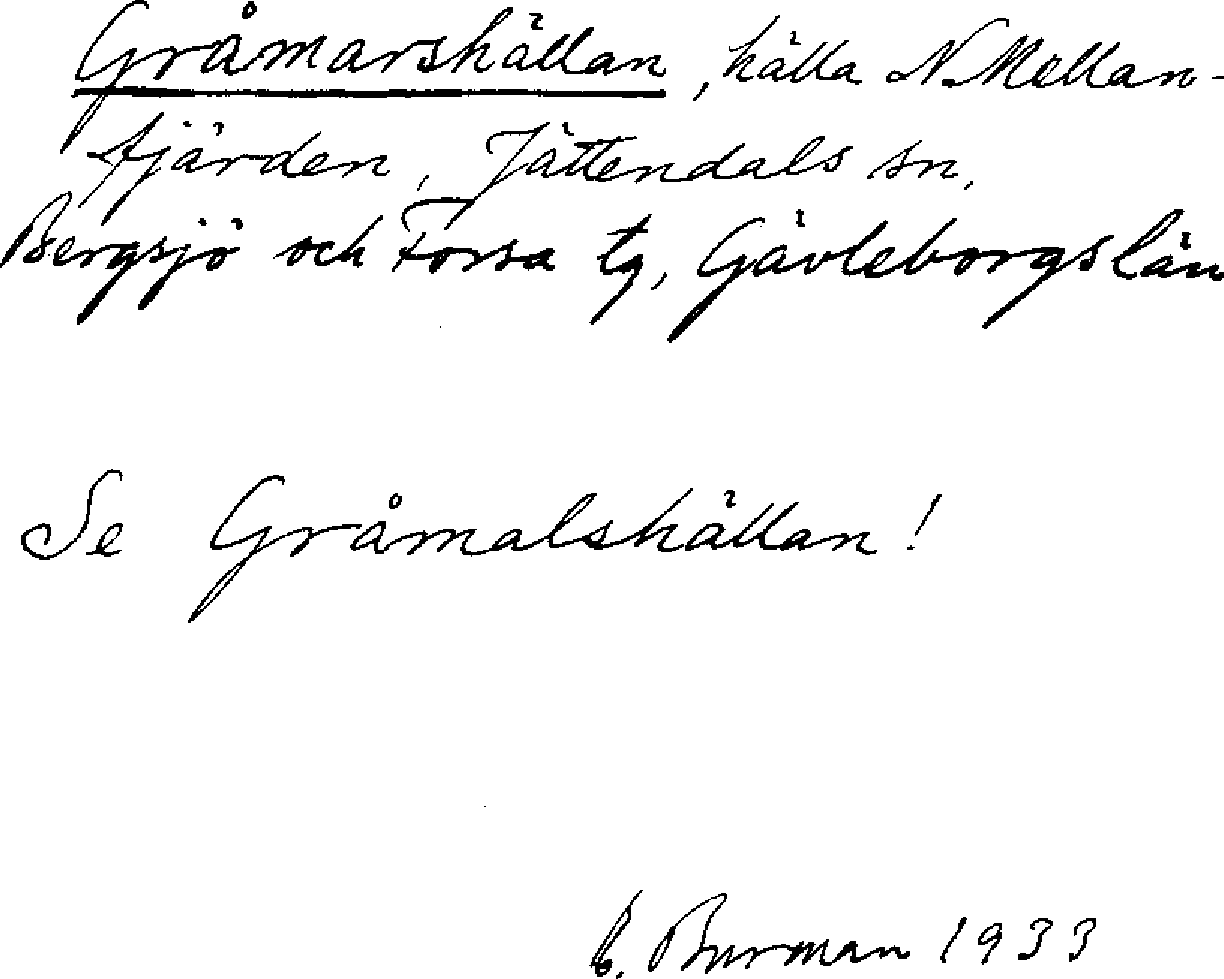 Gråmarshällan, hälla N. Mellan-
fjärden, Jättendals sn,
Bergsjö och Forsa tg, Gävleborgs län
Se Gråmalshällan!
Burman 1933